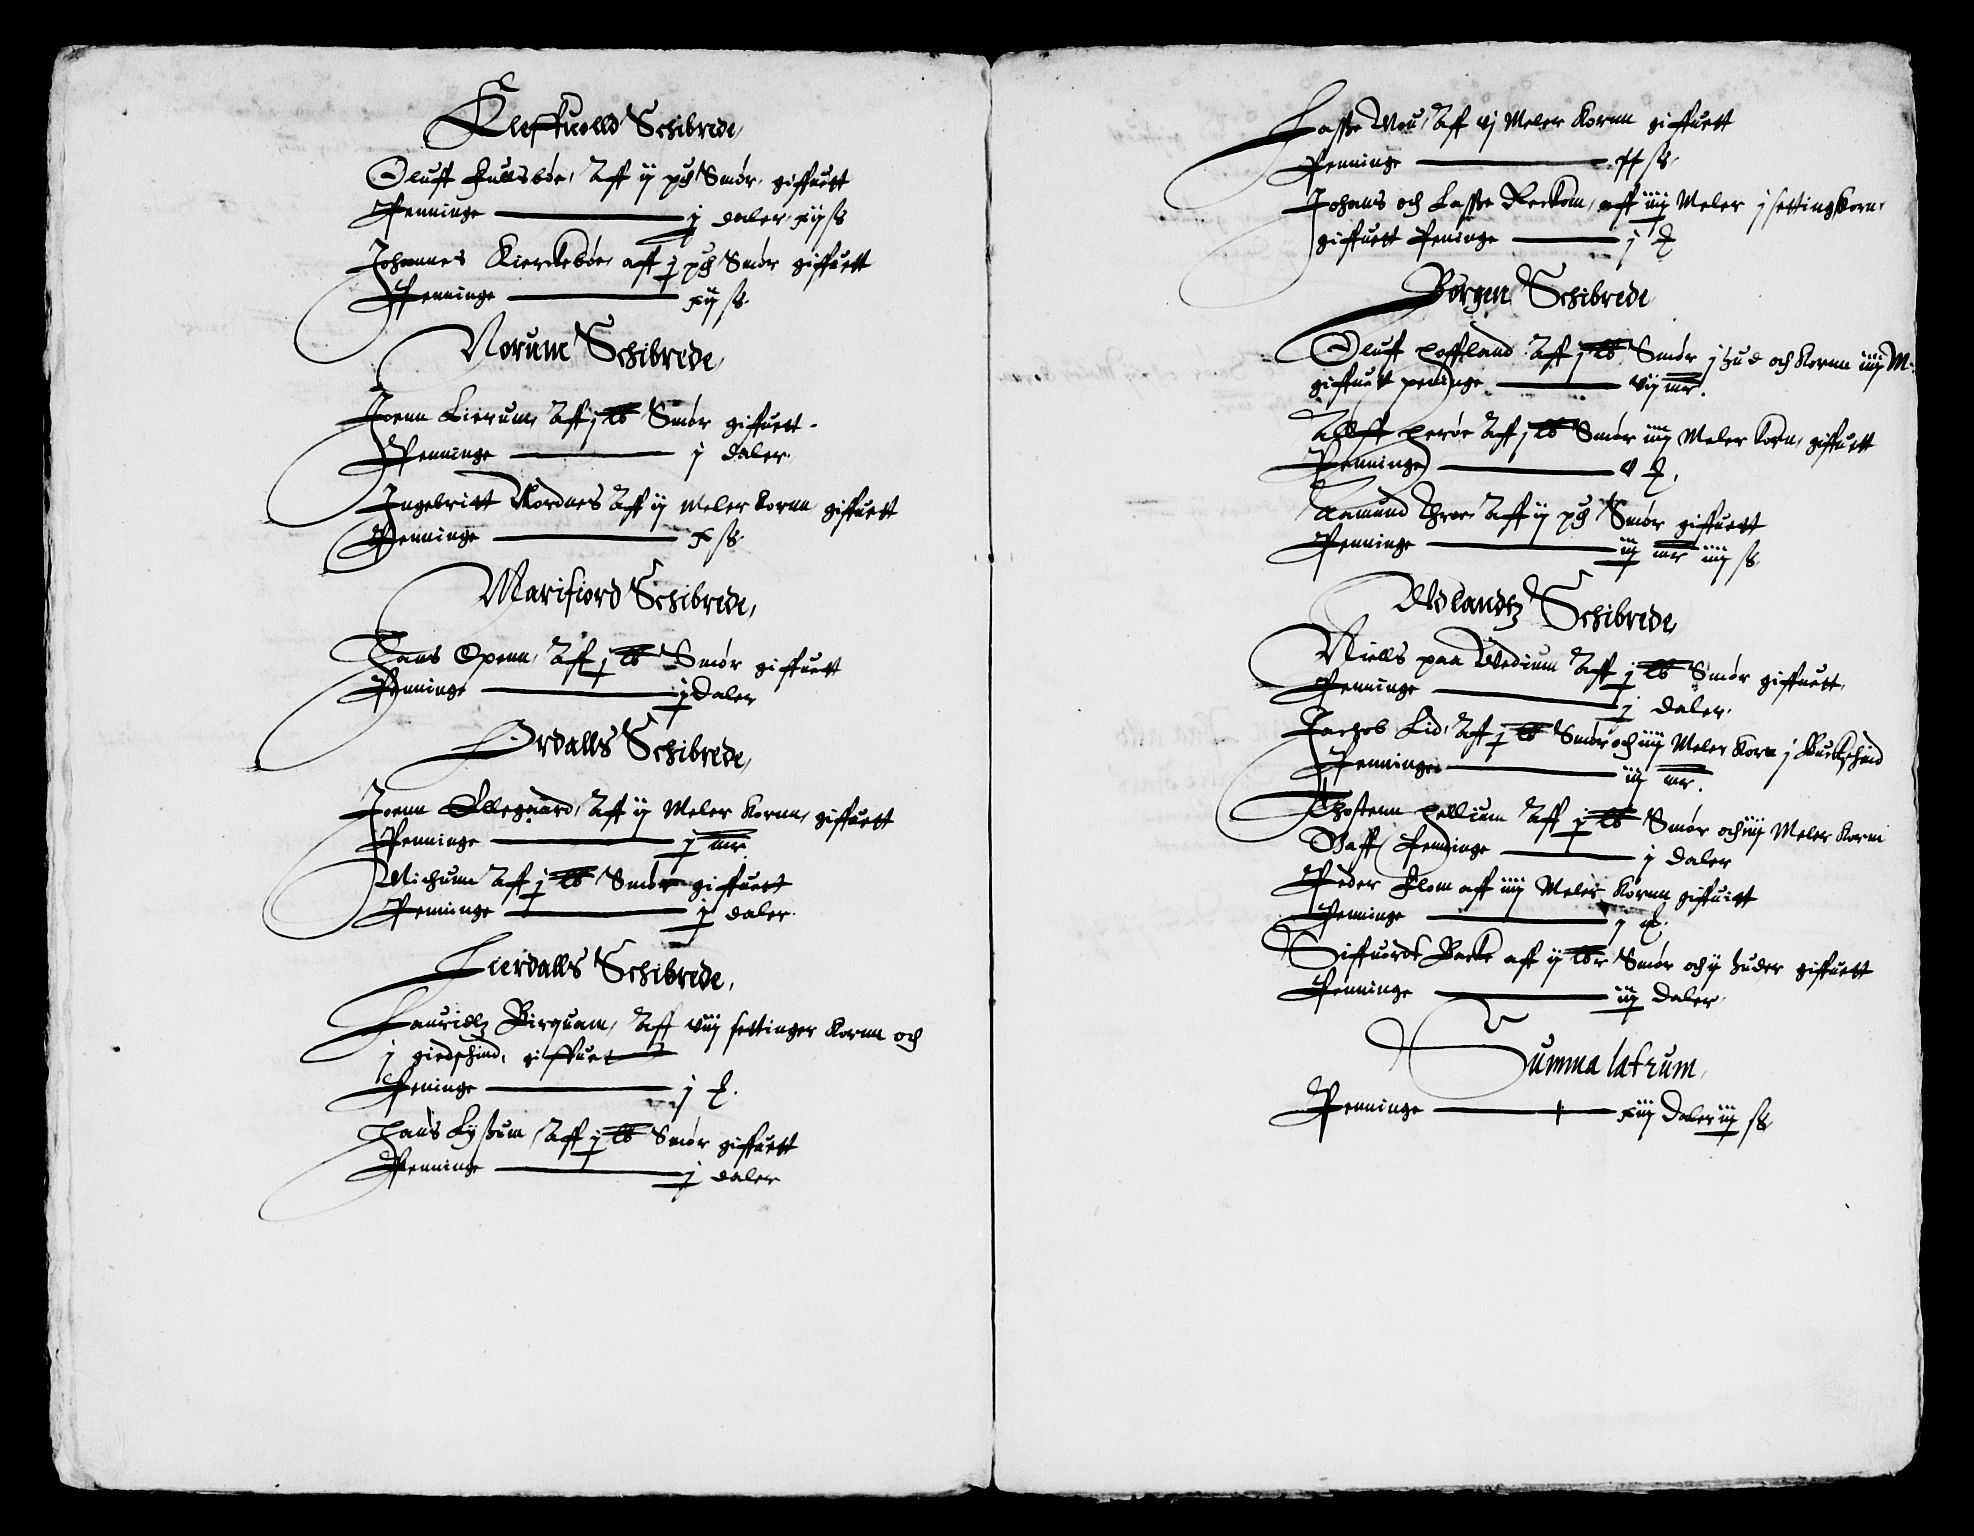 Schibrede,
Oluff Aff ij pd Smør, giffuett
Penninge j daler, xij ss
Johannes Kierckebøe, aff j pd Smør giffuett
Penninge xij ss.
Norum Schibrede,
Joenn Lierum, Aff j lb Smør giffuett
Penninge j daler.
Ingebritt Nordnes Aff ij Meler Kornn giffuett
Penninge x ss.
Marifiord Schibrede,
Hans Openn, Aff j lb Smør giffuett
Penninge j Daler
Ordalls Schibrede,
Joenn Ellegaard, Aff ij Meler Kornn, giffuett
Penninge j mr
Michum Aff j lb Smør giffuett
Penninge j daler.
Lierdalls Schibrede,
Lauridtz Birquam, Aff viij settinger Kornn och
j giedschind, giffuet
Peninge j
Hans Aff j lb Smør giffuett
Penninge j daler
Lasse Mou, Aff vj Meler Kornn giffuett
Penninge ss.
Johans och Lasse Aff iiij Meler j setting Korn,
giffuett Peninge j
Borgen Schibrede
Oluff Hoffland Aff j lb Smør j hud och Kornn iiij M:
giffuett peninge vij mr.
Aff j lb Smør iiij Meler Korn, giffuett
Penninge v
Aamund Aff ij pd Smør giffuett
Penninge iij mr iiij ss.
Schibrede,
Niells paa Vedium Aff j lb Smør giffuett,
Penninge j daler.
Jachob Lid, Aff j lb Smør och iiij Meler Korn j Buckschind
Penninge iij mr.
Thostenn Aff j lb Smør och iiij Meler Kornn
Gaff Penninge j daler
Peder Flom aff iiij Meler Kornn giffuitt
Penninge j
Siffuordt Backe aff ij lbr Smør och ij huder giffuett
Penninge iij Daler,
Summa latrum,
Penninge xiij Daler iij ss,